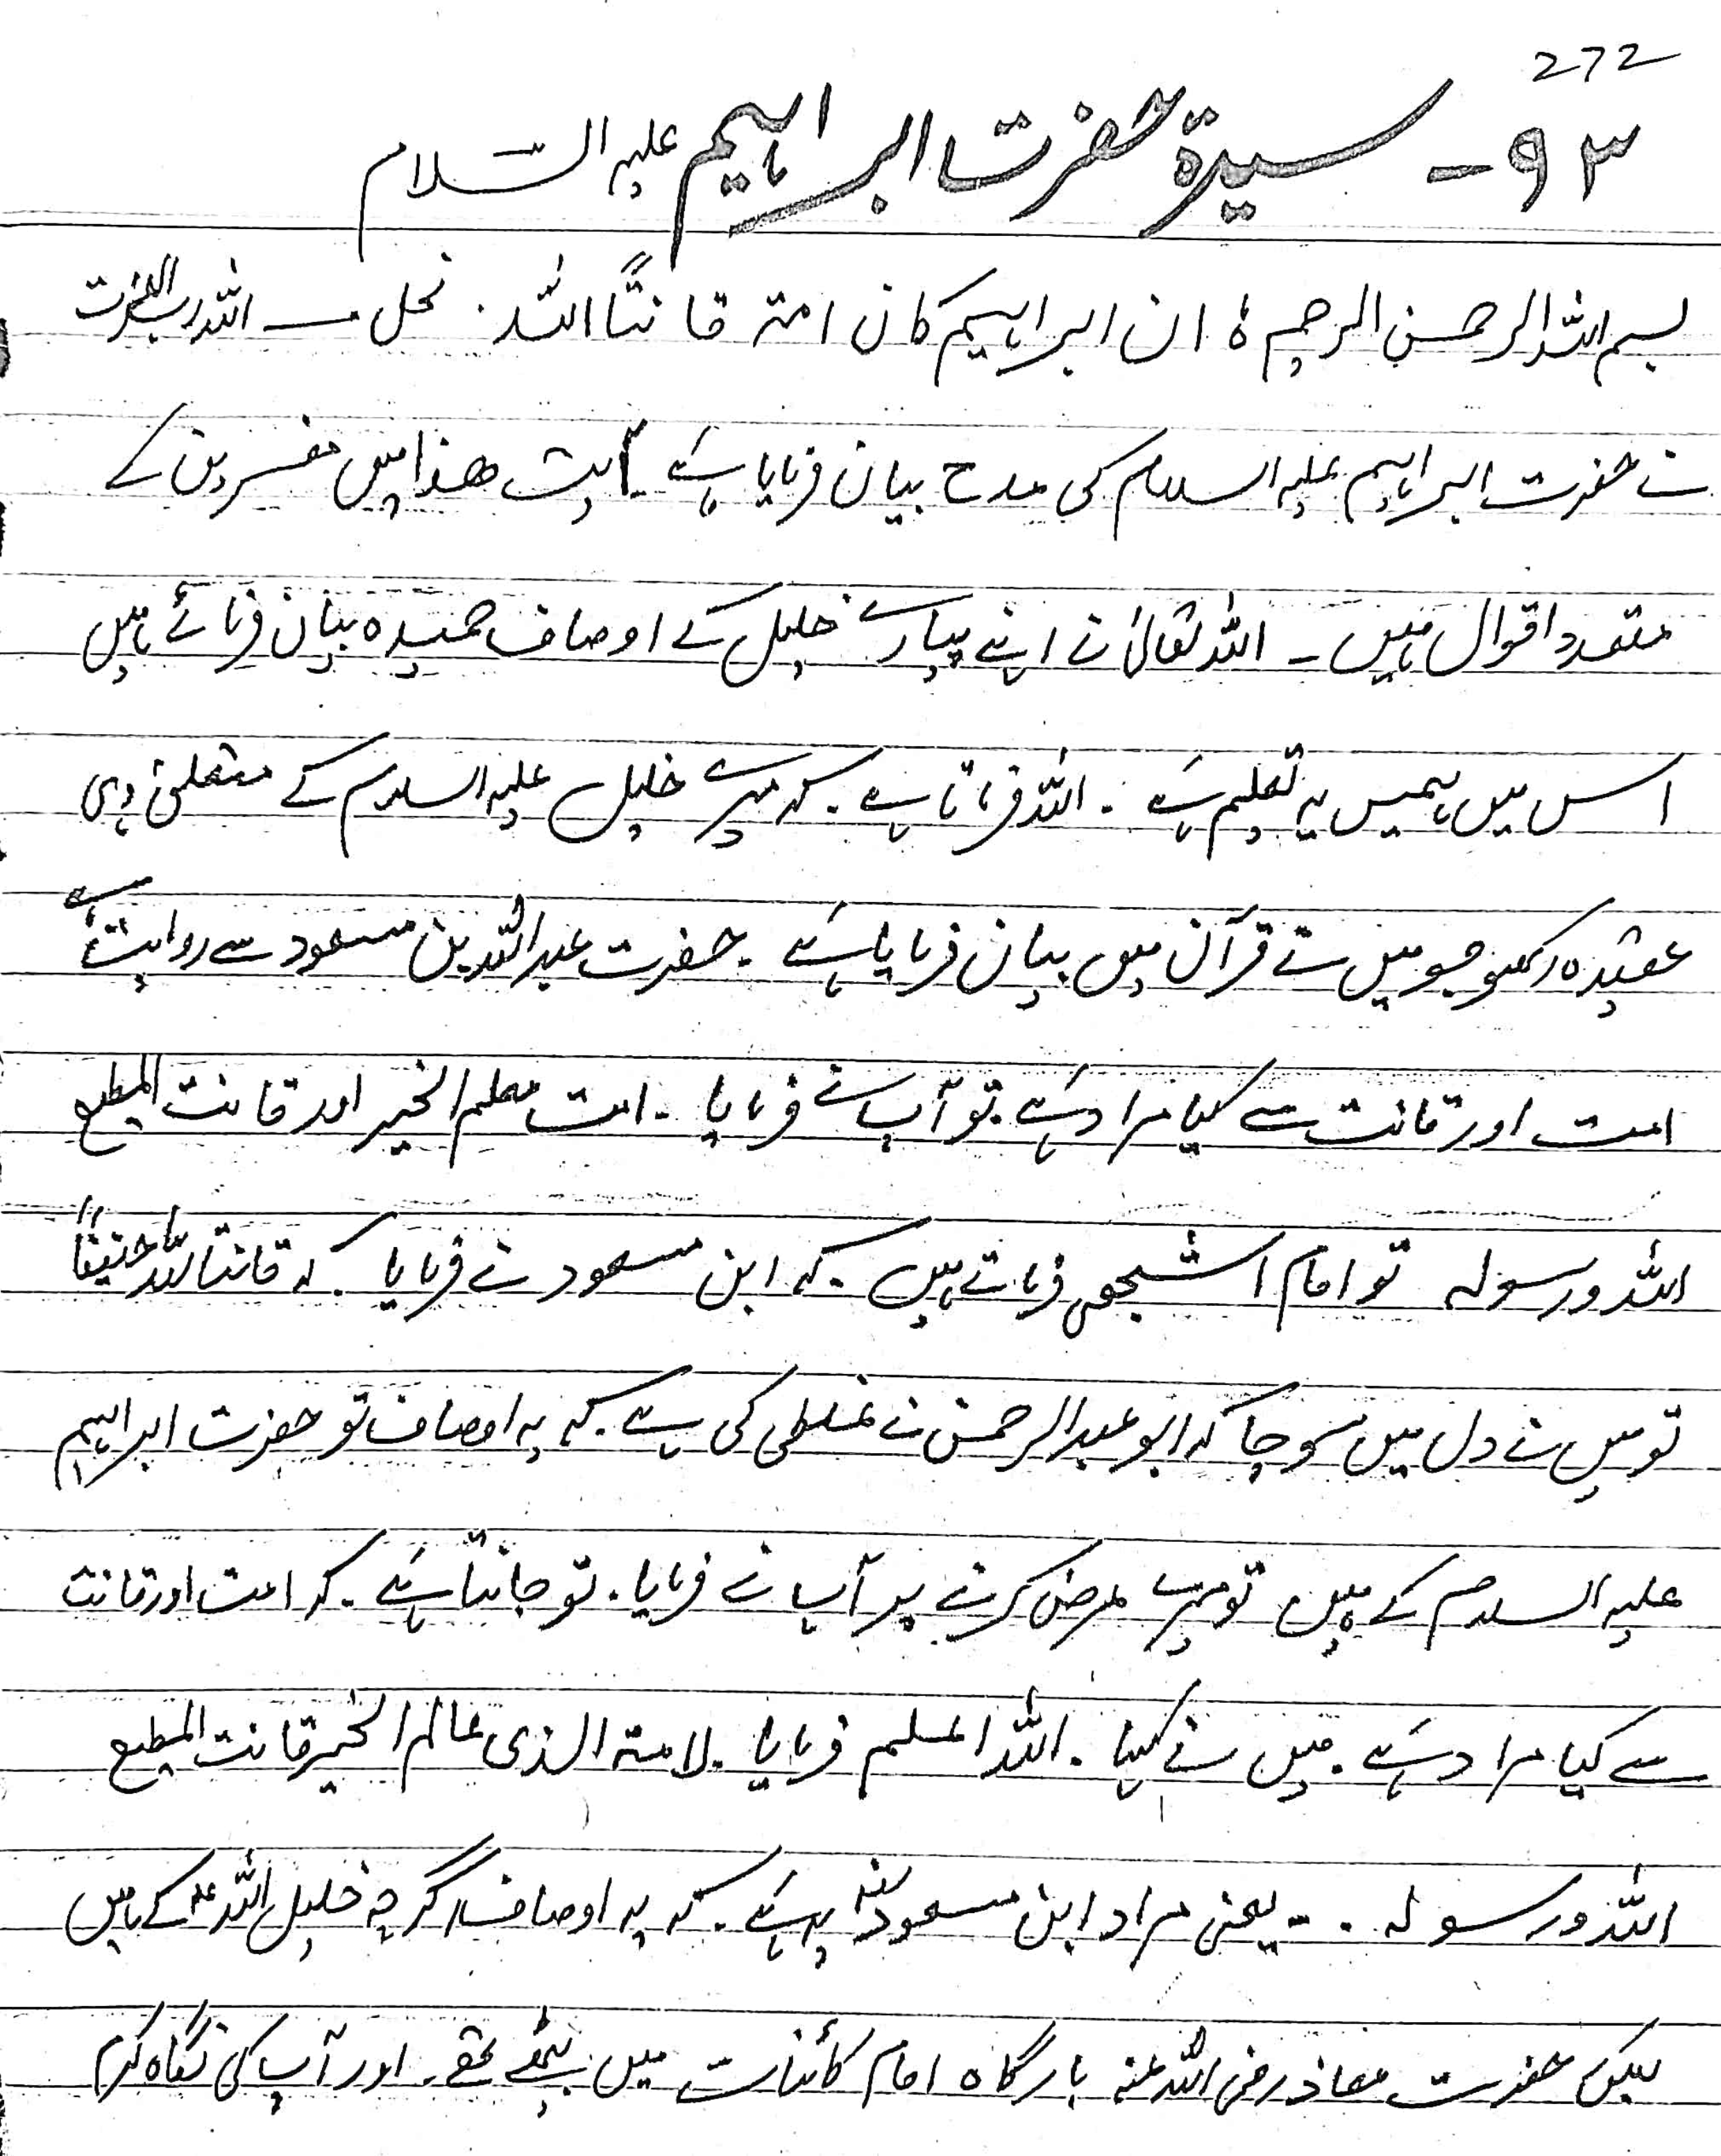 272
۹۳ - سیرۃ حضرت ابراہیم علیہ السلام
بسم اللہ الرحمن الرحیم ہ ان ابراہیم کان امتہ قانتاً اللہ . نحل — اللہ رب العزت
نے حضرت ابراہیم علیہ السلام کی مدح بیان فرمایا ہے - آیت ھذا میں مفسرین کے
متعدد اقوال ہیں - اللہ تعالیٰ نے اپنے پیارے خلیل کے اوصاف حمیدہ بیان فرمائے ہیں
اس میں ہمیں یہ تعلیم ہے . اللہ فرماتا ہے . کہ میرے خلیل علیہ السلام کے متعلق وہی
عقیدہ رکھو جو میں نے قرآن میں بیان فرمایا ہے . حضرت عبداللہ بن مسعود سے روایت ہے
امت اور قانت سے کیا مراد ہے . تو آپ نے فرمایا . امت معلم الخیر اور قانت المطیع
اللہ و رسولہ تو امام اشجعی فرماتے ہیں . کہ ابن مسعود نے فرمایا کہ قانتا للہ حنیفاً
تو میں نے دل میں سوچا کہ ابو عبدالرحمن نے غلطی کی ہے . کہ یہ اوصاف تو حضرت ابراہیم
علیہ السلام کے ہیں تو میرے عرض کرنے پر آپ نے فرمایا . تو جانتا ہے . کہ امت اور قانت
سے کیا مراد ہے . میں نے کہا . اللہ اعلم فرمایا . لامتہ الذی عالم الخیر قانت المطیع
اللہ و رسولہ . - یعنی مراد ابن مسعود یہ ہے . کہ یہ اوصاف اگرچہ خلیل اللہ کے ہیں
لیکن حضرت معاذ رضی اللہ عنہ بارگاہ امام کائنات میں بیٹھے تھے . اور آپ کی نگاہ کرم